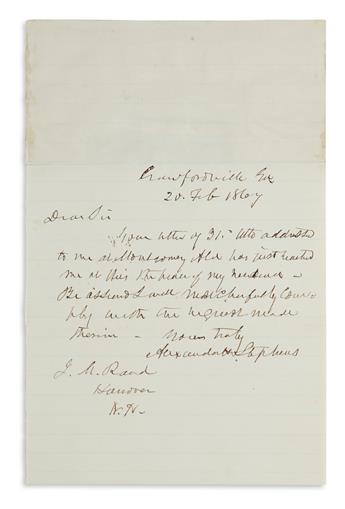 Crawfordville Ga
20 Feb 1867
Dear Sir
Your letter of 31st Ulto addressed
to me at Montgomery Ala has just reached
me at this the place of my residence -
Be assured I will most cheerfully com-
ply with the request made
therein - Yours truly
Alexander H. Stephens
J. M. Rand
Hanover